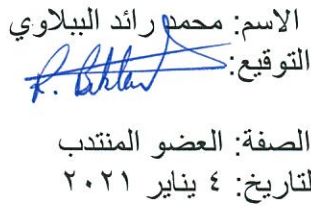 الاسم: محمد رائد الببلاوي
التوقيع:
الصفة: العضو المنتدب
لتاريخ: ٤ يناير ٢٠٢١